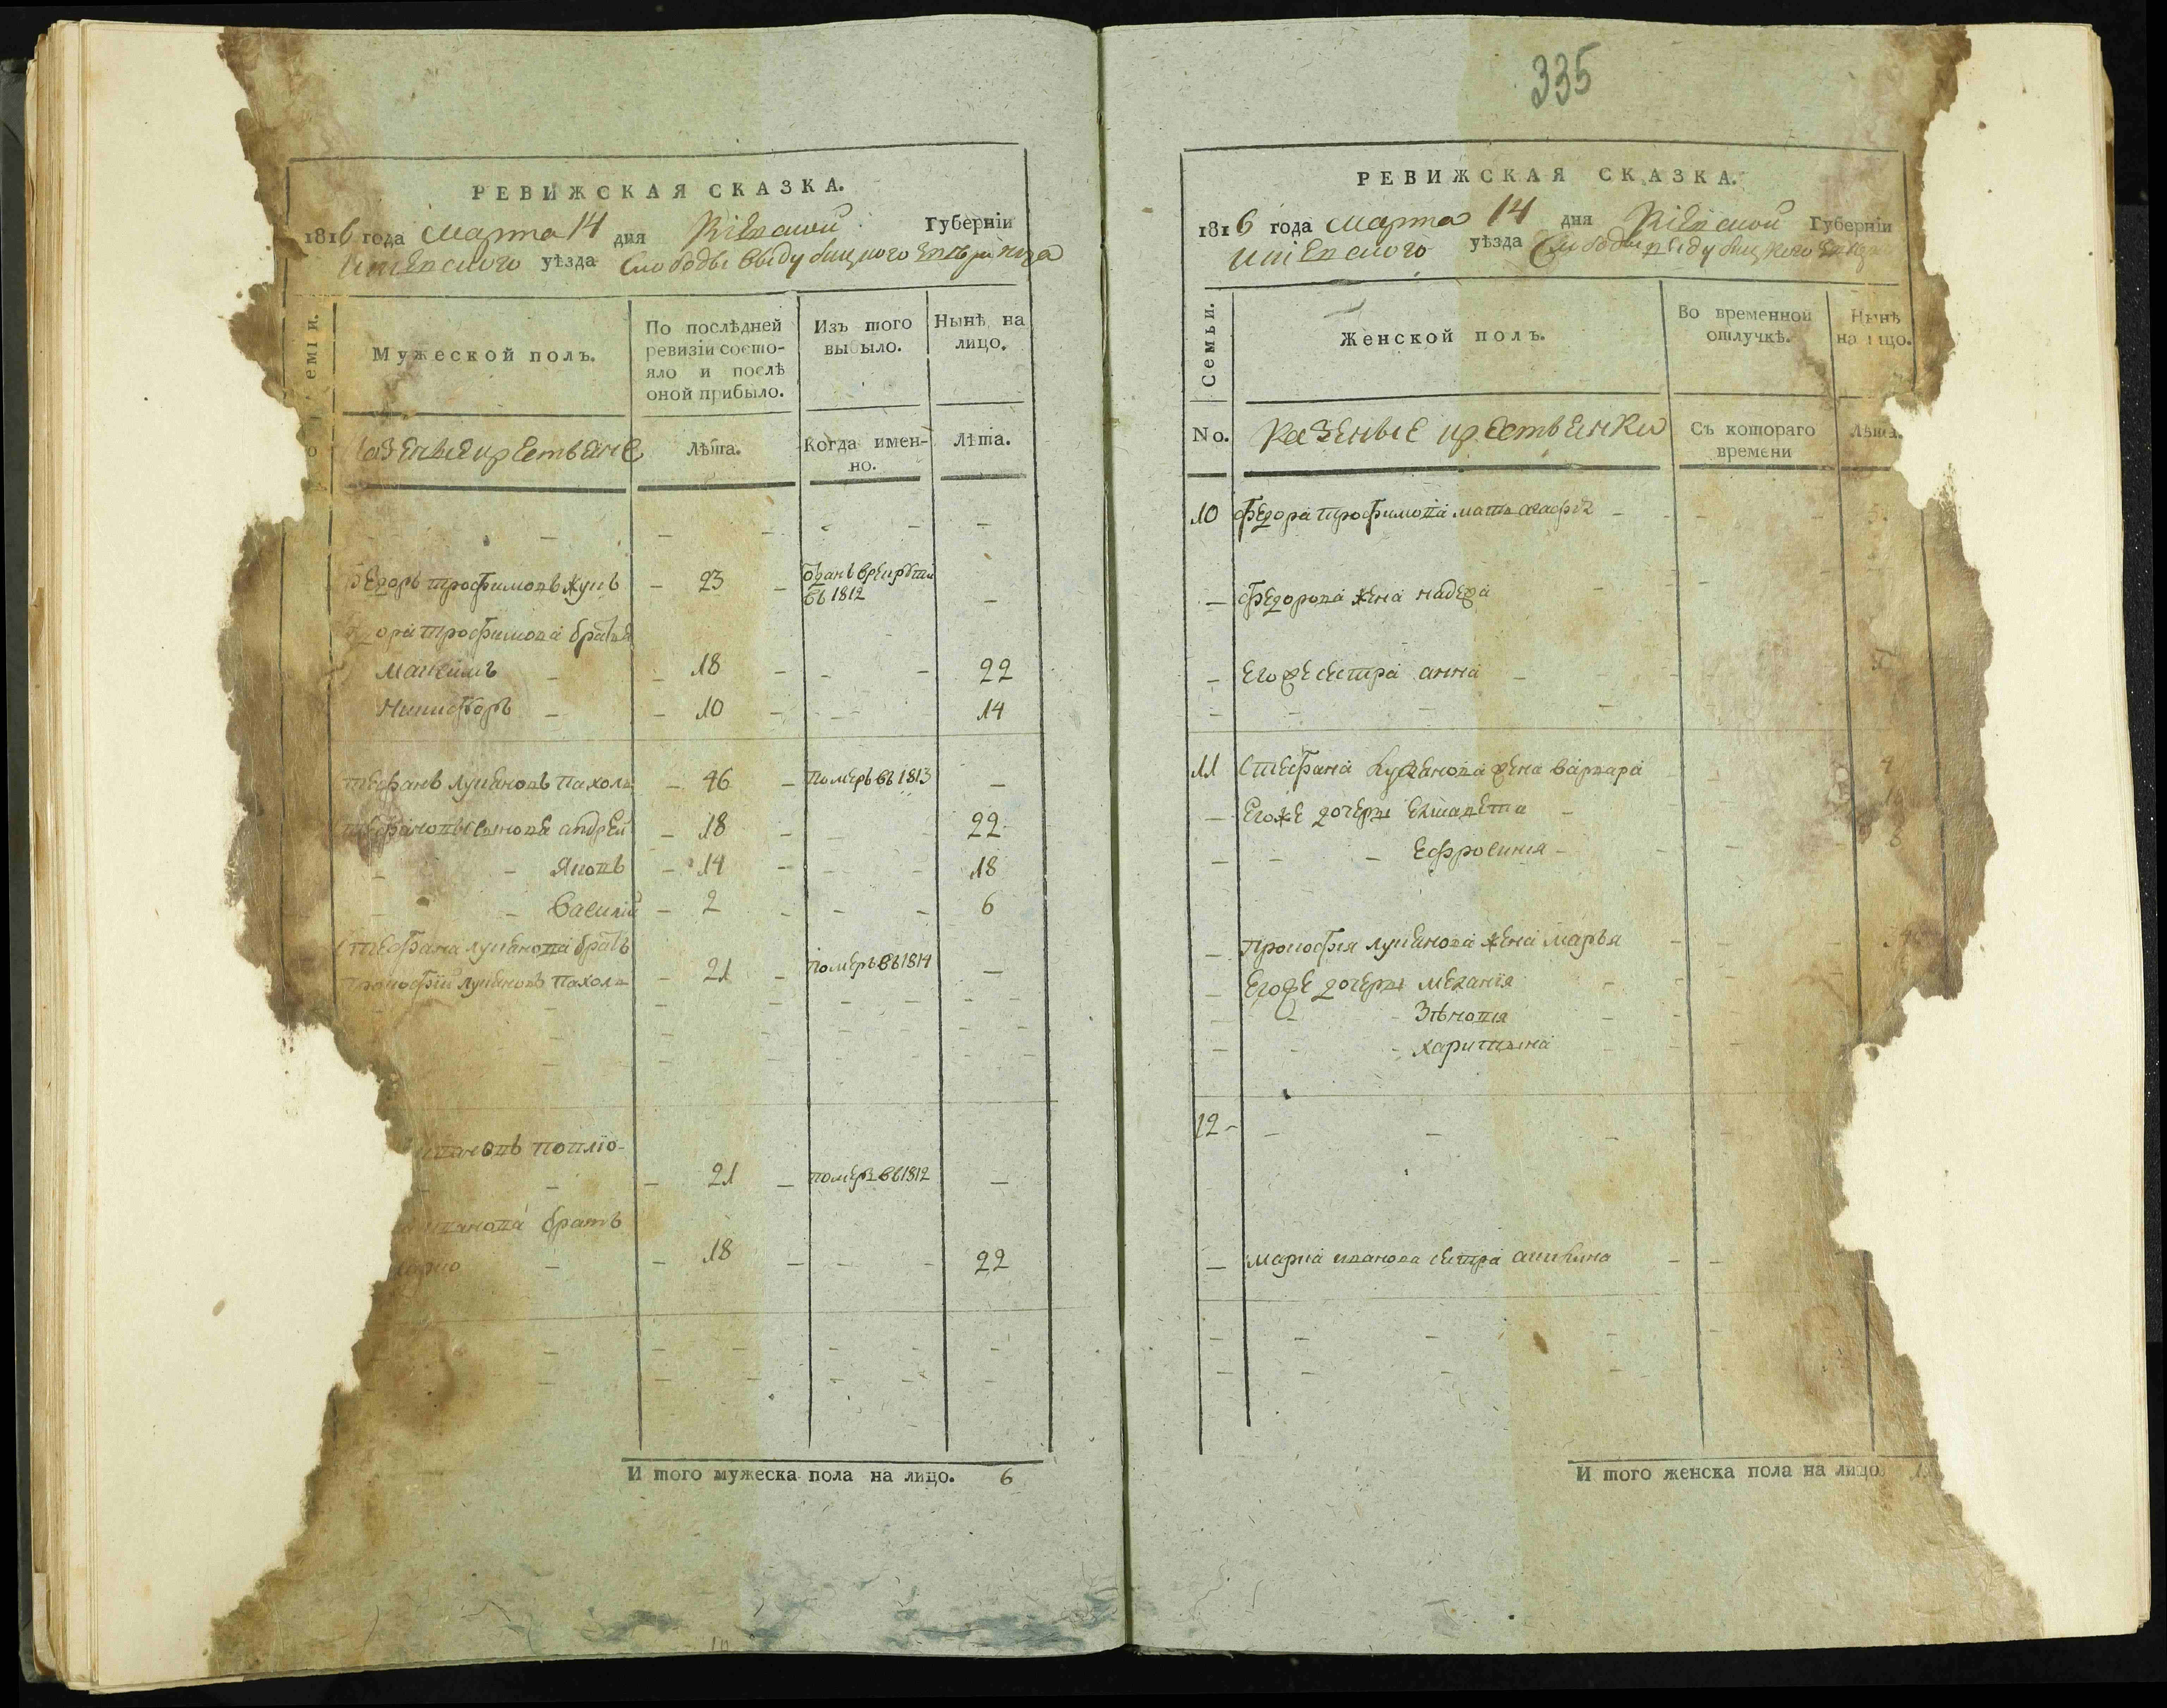 РЕВИЖСКАЯ СКАЗКА.
1816 года Марта 14 дня Кіевской Губерніи
Кіевского уѣзда Слободы Выдубицкого
Мужеской полъ.
По послѣдней
ревизіи состо-
яло и послѣ
оной прибыло.
Изъ того
выбыло.
Нынѣ на
лицо.
Казенные крестьяне
Лѣта.
Когда имен-
но.
Лѣта.
Федоръ Трофимовъ Куцъ - 23 - въ 1812 -
Федора Трофимова братья
Максимъ - 18 - 22
Никифоръ - 10 - 14
Стефанъ Лукяновъ Пахолъ - 46 - Померъ въ 1813 -
Стефановы сынове Андрей - 18 - 22
Яковъ - 14 - 18
Василій - 2 - 6
Стефана Лукянова братъ
Прокофій Лукяновъ Пахолъ - 21 - померъ въ 1814 -
- 21 - померъ въ 1812 -
братъ
Марко - 18 - 22
И того мужеска пола на лицо. 6
335
РЕВИЖСКАЯ СКАЗКА.
1816 года Марта 14 дня Кіевской Губерніи
Кіевского уѣзда Слободы Выдубицкого
Семьи.
Женской полъ.
Во временной
отлучкѣ.
Нынѣ
на лицо.
No.
Казеные крестьянки
Съ котораго
времени
Лѣта.
10 Федора Трофимова мать Агафія
- Федорова жена
- Его же сестра Анна
11 Стефана Лукянова жена Варвара
- Его же дочеры Елисавета
- Ефросинія
- Прокофія Лукянова жена Марья
- Его же дочеры Меланія
- Зѣновія
- Харитына
12 -
- Марка Иванова сестра Акилина
И того женска пола на лицо